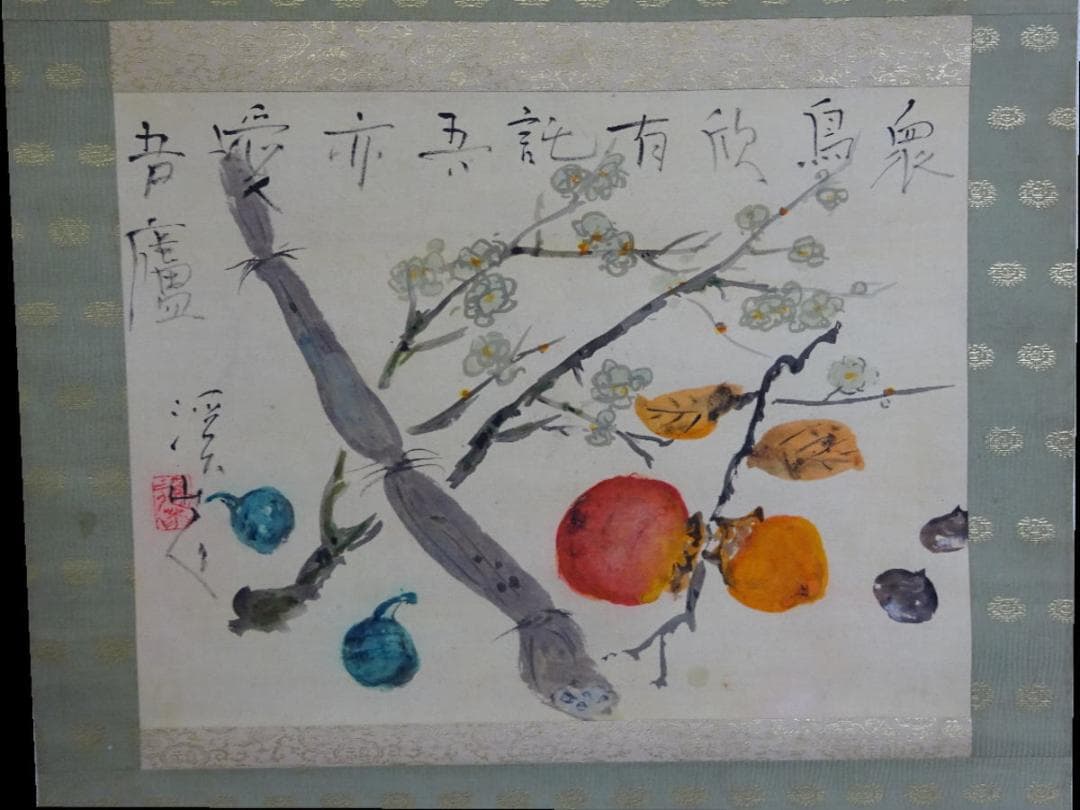 衆鳥欣有託吾亦愛
吾廬
溪山人